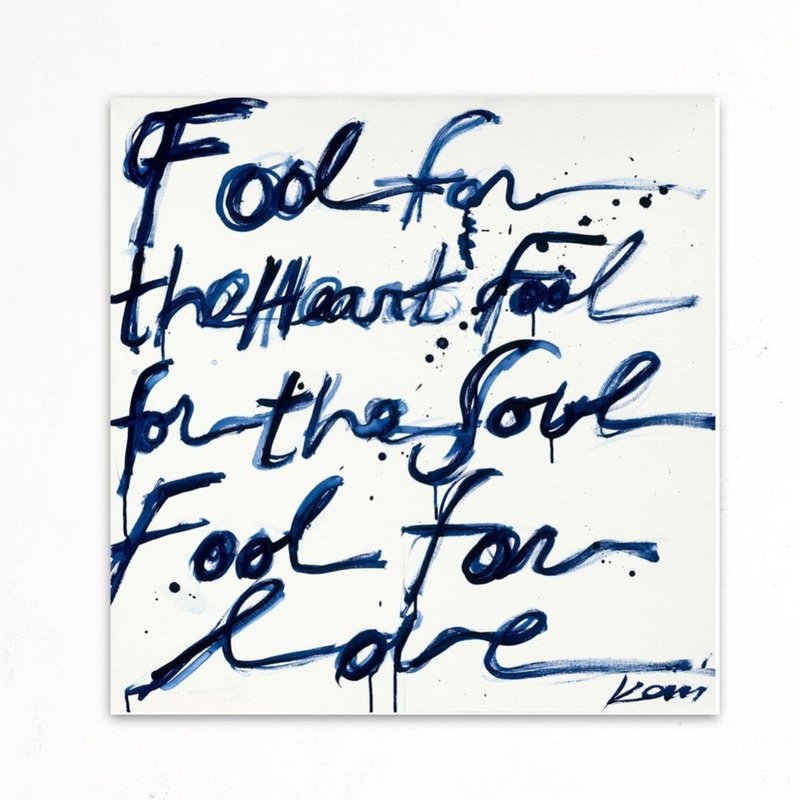 Fool for
the Heart Fool
for the Soul
Fool for
love
Komi